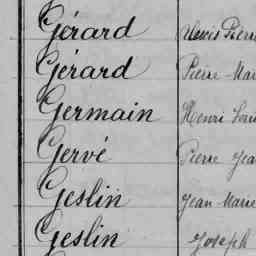 Gérard Louis Pierre
Gérard Pierre Mari
Germain Henri Loui
Gervé Pierre Jea
Geslin Jean Marie
Geslin Joseph